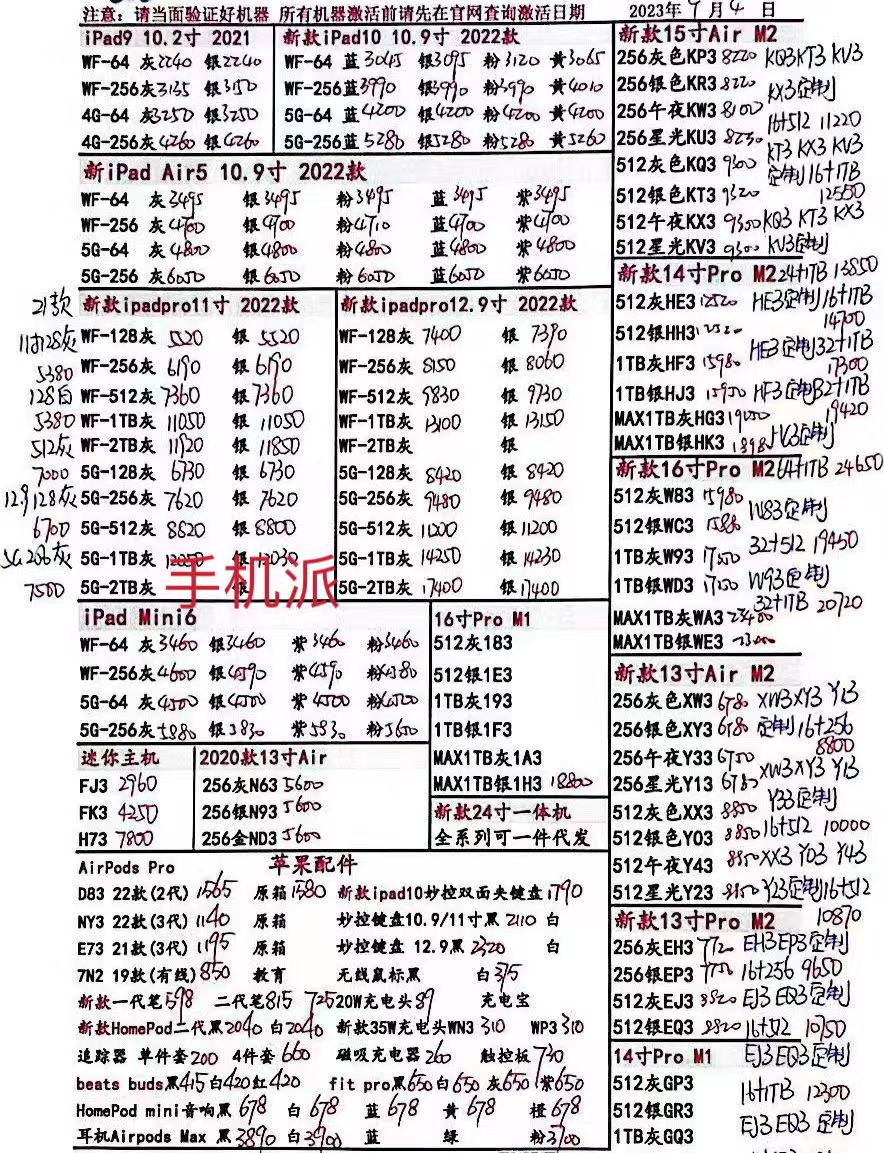 注意：请当面验证好机器 所有机器激活前请先在官网查询激活日期
2023年9月4日
iPad9 10.2寸 2021
WF-64 灰2240 银2240
WF-256灰3135 银3150
4G-64 灰3250 银3250
4G-256灰4260 银4260
新款iPad10 10.9寸 2022款
WF-64 蓝3045 银3095 粉3120 黄3065
WF-256蓝3990 银3990 粉3990 黄4010
5G-64 蓝4200 银4200 粉4200 黄4200
5G-256蓝5280 银5280 粉5280 黄5260
新iPad Air5 10.9寸 2022款
WF-64 灰3495 银3495 粉3495 蓝3495 紫3495
WF-256 灰4700 银4700 粉4710 蓝4700 紫4700
5G-64 灰4800 银4800 粉4800 蓝4800 紫4800
5G-256 灰6050 银6050 粉6050 蓝6050 紫6050
21款
11寸128灰
5380
128白
5380
512灰
7000
12.9 128灰
6700
5G 256灰
7500
新款ipadpro11寸 2022款
WF-128灰 5520 银 5520
WF-256灰 6190 银 6190
WF-512灰 7360 银 7360
WF-1TB灰 11050 银 11050
WF-2TB灰 11920 银 11850
5G-128灰 6730 银 6730
5G-256灰 7620 银 7620
5G-512灰 8820 银 8800
5G-1TB灰 银 12030
5G-2TB灰 银
手机派
新款ipadpro12.9寸 2022款
WF-128灰 7400 银 7390
WF-256灰 8150 银 8060
WF-512灰 9830 银 9730
WF-1TB灰 13100 银 13150
WF-2TB灰 银
5G-128灰 8420 银 8420
5G-256灰 9480 银 9480
5G-512灰 11200 银 11200
5G-1TB灰 14250 银 14230
5G-2TB灰 17400 银 17400
iPad Mini6
WF-64 灰3460 银3460 紫3460 粉3460
WF-256灰4600 银4590 紫4590 粉4580
5G-64 灰4500 银4500 紫4500 粉4500
5G-256灰5880 银5830 紫5830 粉5600
16寸Pro M1
512灰183
512银1E3
1TB灰193
1TB银1F3
MAX1TB灰1A3
MAX1TB银1H3 18800
迷你主机
FJ3 2960
FK3 4250
H73 7800
2020款13寸Air
256灰N63 5600
256银N93 5600
256金ND3 5600
新款24寸一体机
全系列可一件代发
苹果配件
AirPods Pro
D83 22款(2代) 1565 原箱1580 新款ipad10妙控双面夹键盘1790
NY3 22款(3代) 1140 原箱 妙控键盘10.9/11寸黑 2110 白
E73 21款(3代) 1195 原箱 妙控键盘 12.9黑 2320 白
7N2 19款(有线) 850 教育 无线鼠标黑 白375
新款一代笔598 二代笔815 725 20W充电头89 充电宝
新款HomePod二代黑2040 白2040 新款35W充电头WN3 310 WP3 310
追踪器 单件套200 4件套 660 磁吸充电器260 触控板730
beats buds黑415白420红420 fit pro黑650白650 灰650紫650
HomePod mini音响黑 678 白 678 蓝 678 黄 678 橙 678
耳机Airpods Max 黑3890 白3900 蓝 绿 粉3700
新款15寸Air M2
256灰色KP3 8220 KQ3 KT3 KV3
256银色KR3 8220 KX3定制
256午夜KW3 8100 16+512 11220
256星光KU3 8230 KT3 KX3 KV3
512灰色KQ3 9300 定制16+1TB
512银色KT3 9320 12550
512午夜KX3 9300 KQ3 KT3 KX3
512星光KV3 9300 KV3定制
新款14寸Pro M2 24+1TB 13850
512灰HE3 12520 HE3定制16+1TB
14700
512银HH3 12520 HE3定制32+1TB
1TB灰HF3 15980 17300
1TB银HJ3 15950 HF3定制32+1TB
MAX1TB灰HG3 19050 19420
MAX1TB银HK3 HV3定制
新款16寸Pro M2 64+1TB 24650
512灰W83 15980 W83定制
512银WC3
1TB灰W93 32+512 19450
1TB银WD3 W93定制
MAX1TB灰WA3 23400 32+1TB 20720
MAX1TB银WE3
新款13寸Air M2
256灰色XW3 6780 XW3 XY3 Y13
256银色XY3 6780 定制16+256
256午夜Y33 6750 8800
256星光Y13 6780 XW3 XY3 Y13
512灰色XX3 8850 Y33定制
512银色Y03 8850 16+512 10000
512午夜Y43 8850 XX3 Y03 Y43
512星光Y23 8850 Y23定制16+512
新款13寸Pro M2 10870
256灰EH3 7720 EH3 EP3定制
256银EP3 7750 16+256 9650
512灰EJ3 8820 EJ3 EQ3定制
512银EQ3 8820 16+512 10750
14寸Pro M1 EJ3 EQ3定制
512灰GP3 16+1TB 12300
512银GR3
1TB灰GQ3 EJ3 EQ3定制